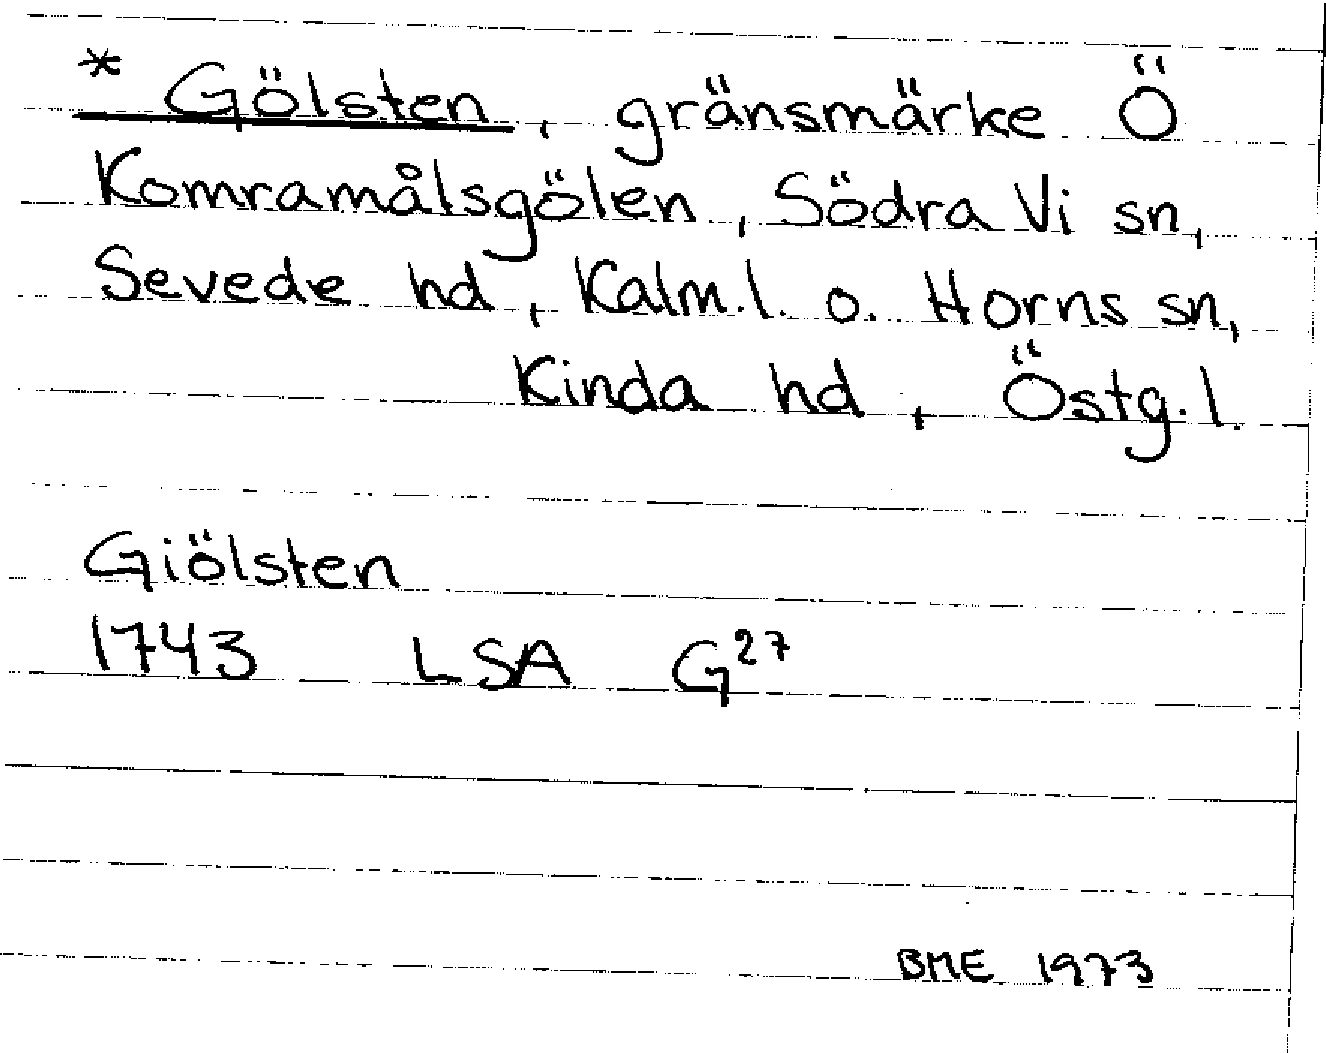 * Gölsten, gränsmärke Ö
Komramålsgölen, Södra Vi sn,
Sevede hd, Kalm.l. o. Horns sn,
Kinda hd, Östg.l.
Giölsten
1743 LSA G²⁷
BME 1973